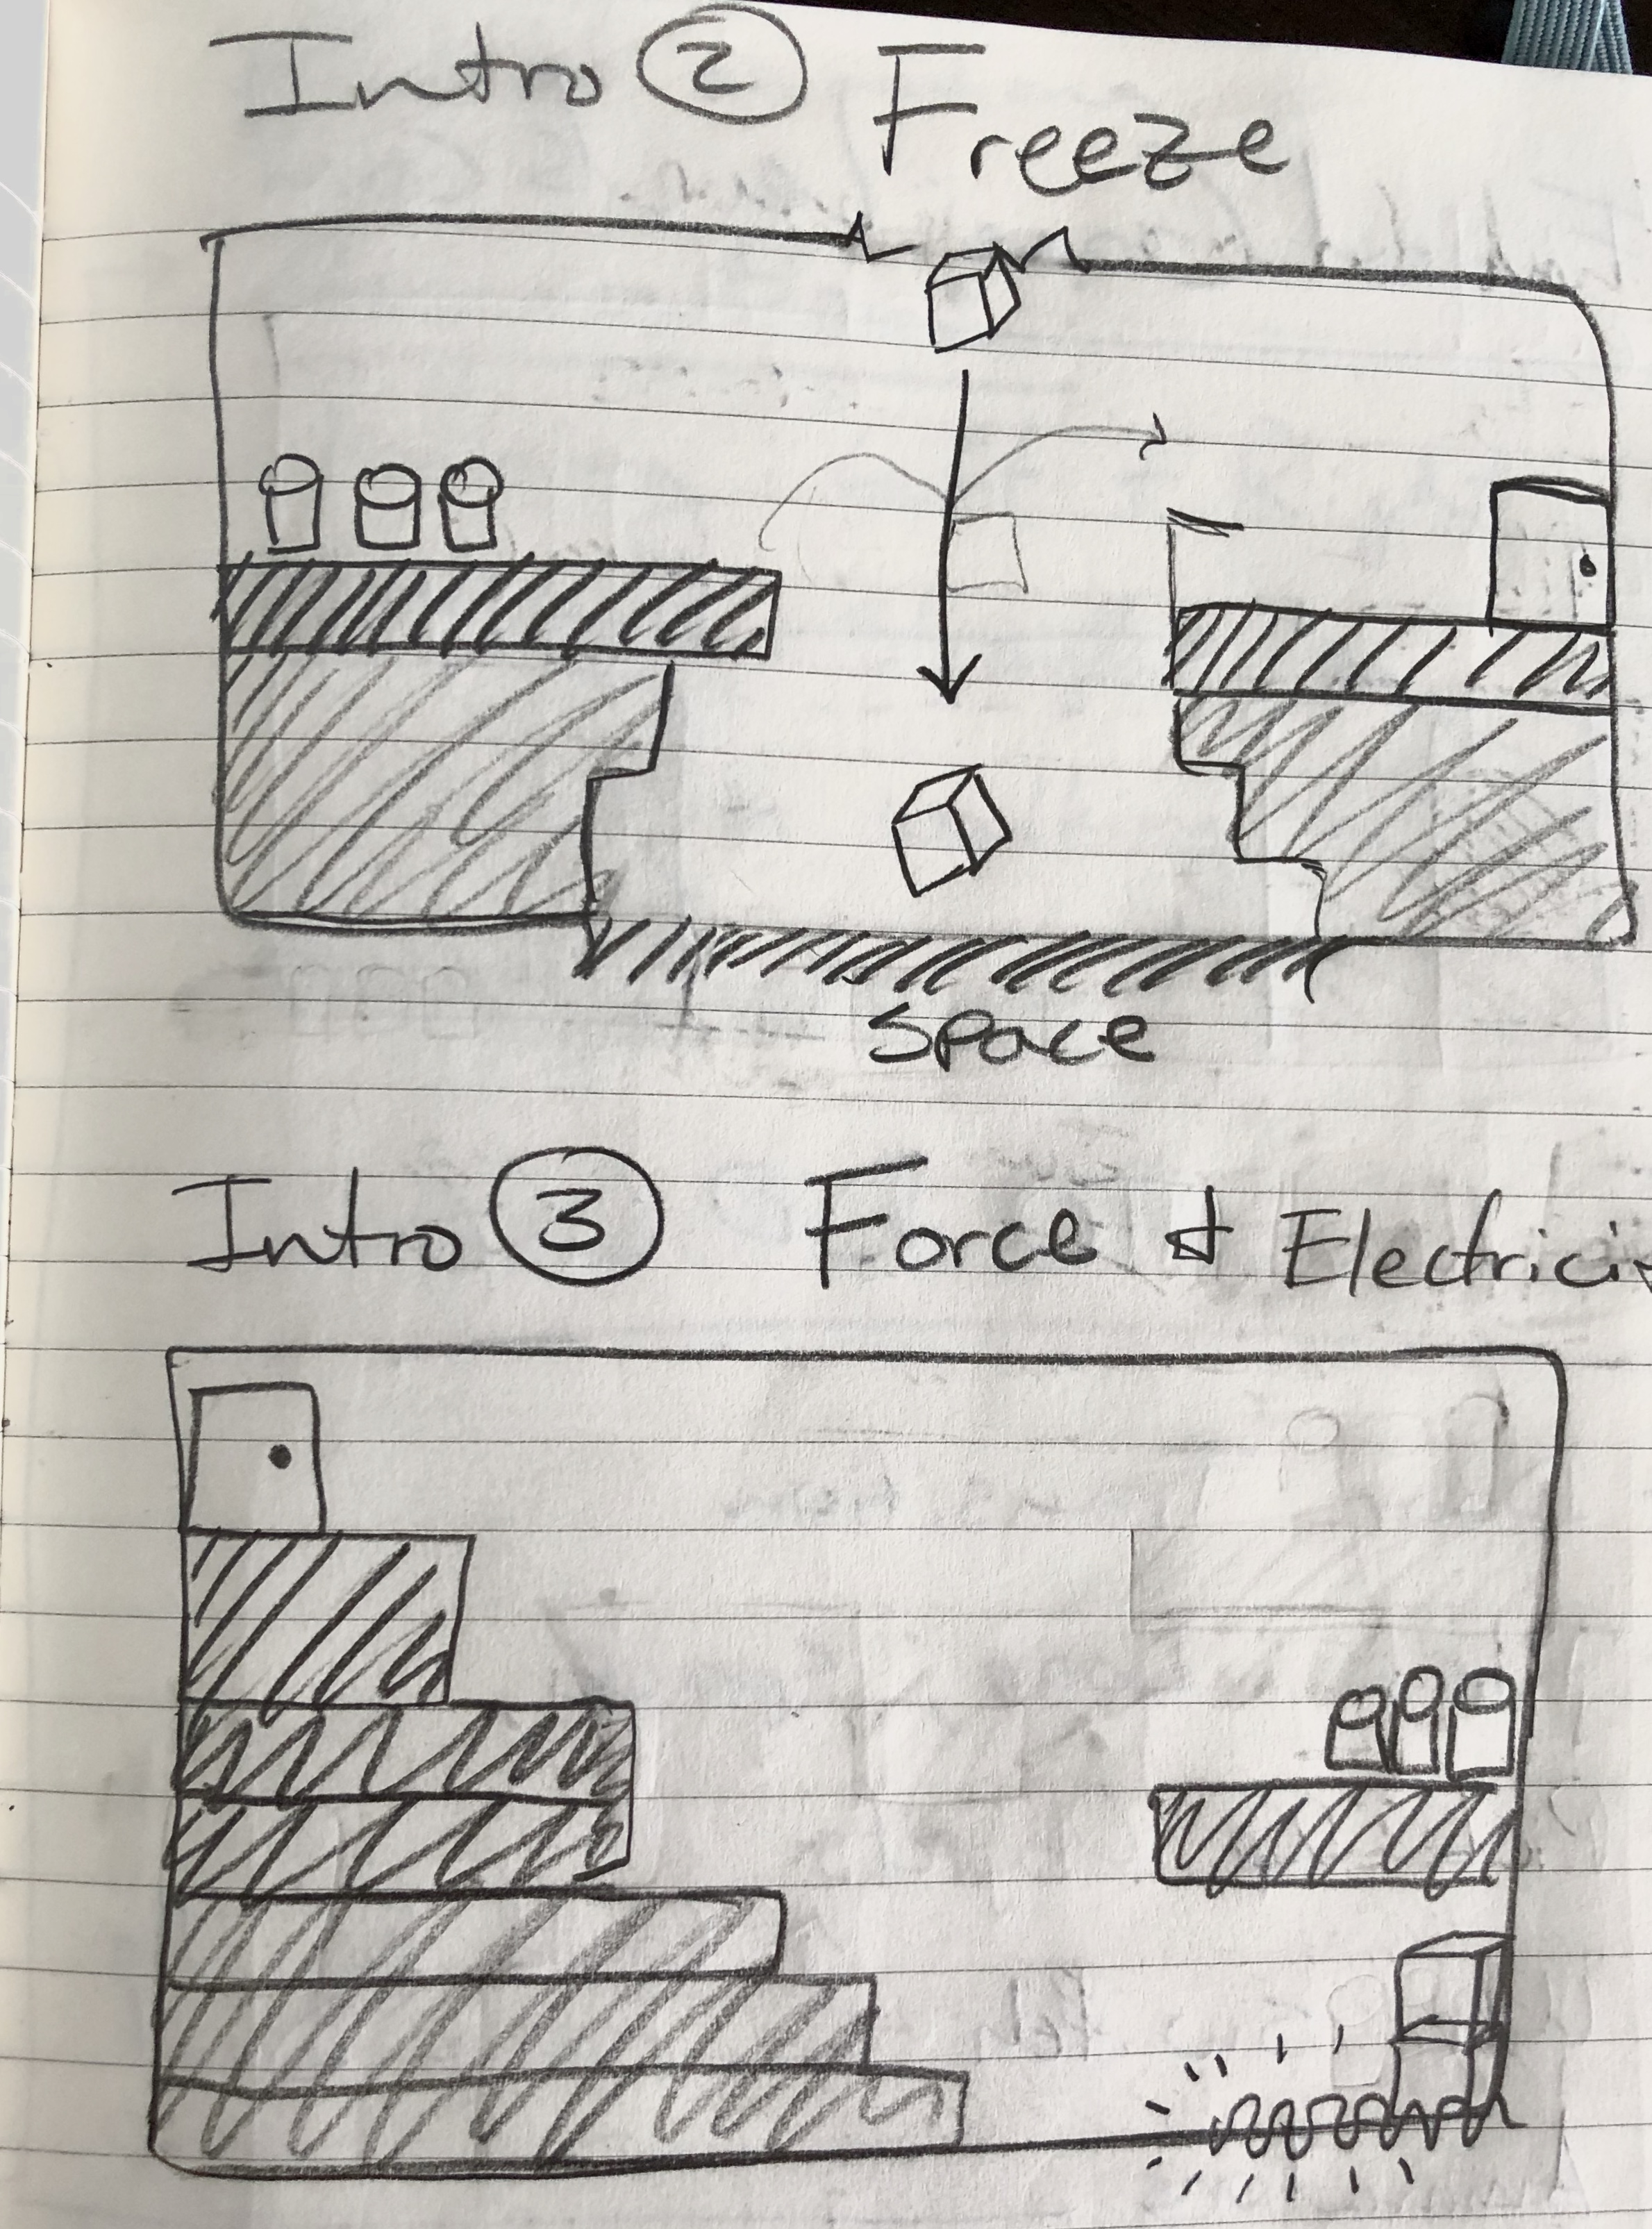 Intro ② Freeze
Space
Intro ③ Force & Electrici